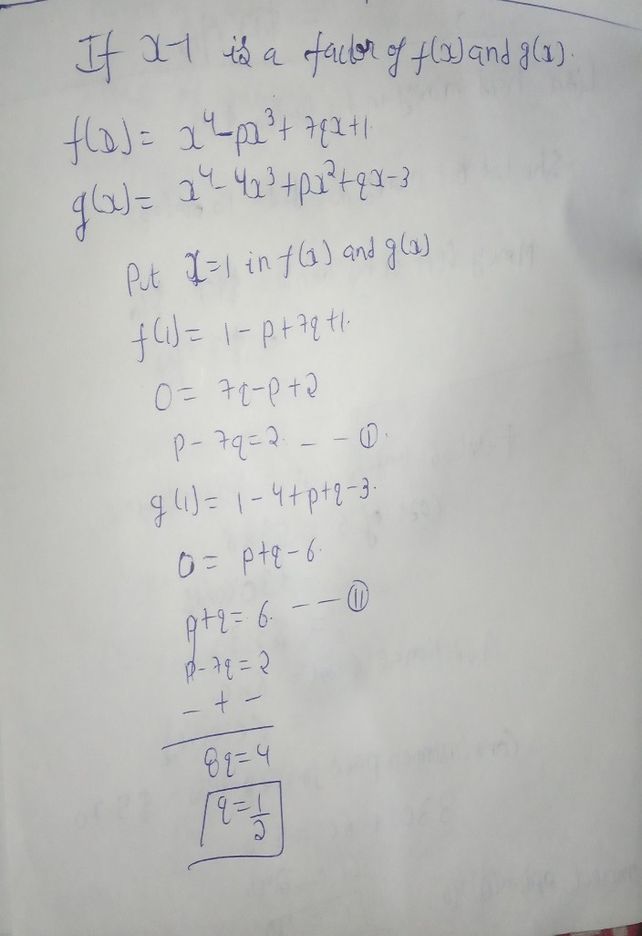 If x-1 is a factor of f(x) and g(x).
f(x) = x⁴-px³+7qx+1
g(x) = x⁴-4x³+px²+qx-3
Put x=1 in f(x) and g(x)
f(1) = 1-p+7q+1.
0 = 7q-p+2
p-7q=2. - - ①.
g(1) = 1-4+p+q-3.
0 = p+q-6.
p+q=6. - - ⑪
p-7q=2
- + -
8q=4
q=1/2